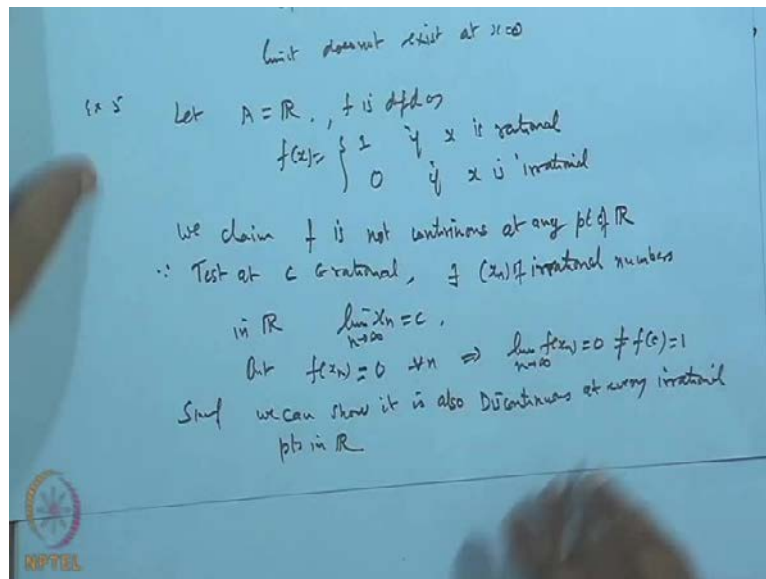 limit does not exist at x=0
Ex 5 Let A = ℝ, f is dfd as
f(x) = { 1 if x is rational
0 if x is irrational
We claim f is not continuous at any pt of ℝ
∵ Test at c ∈ rational, ∃ (xn) of irrational numbers
in ℝ lim n→∞ xn = c.
But f(xn) = 0 ∀n ⇒ lim n→∞ f(xn) = 0 ≠ f(c) = 1
we can show it is also Discontinuous at every irrational
pts in ℝ
NPTEL